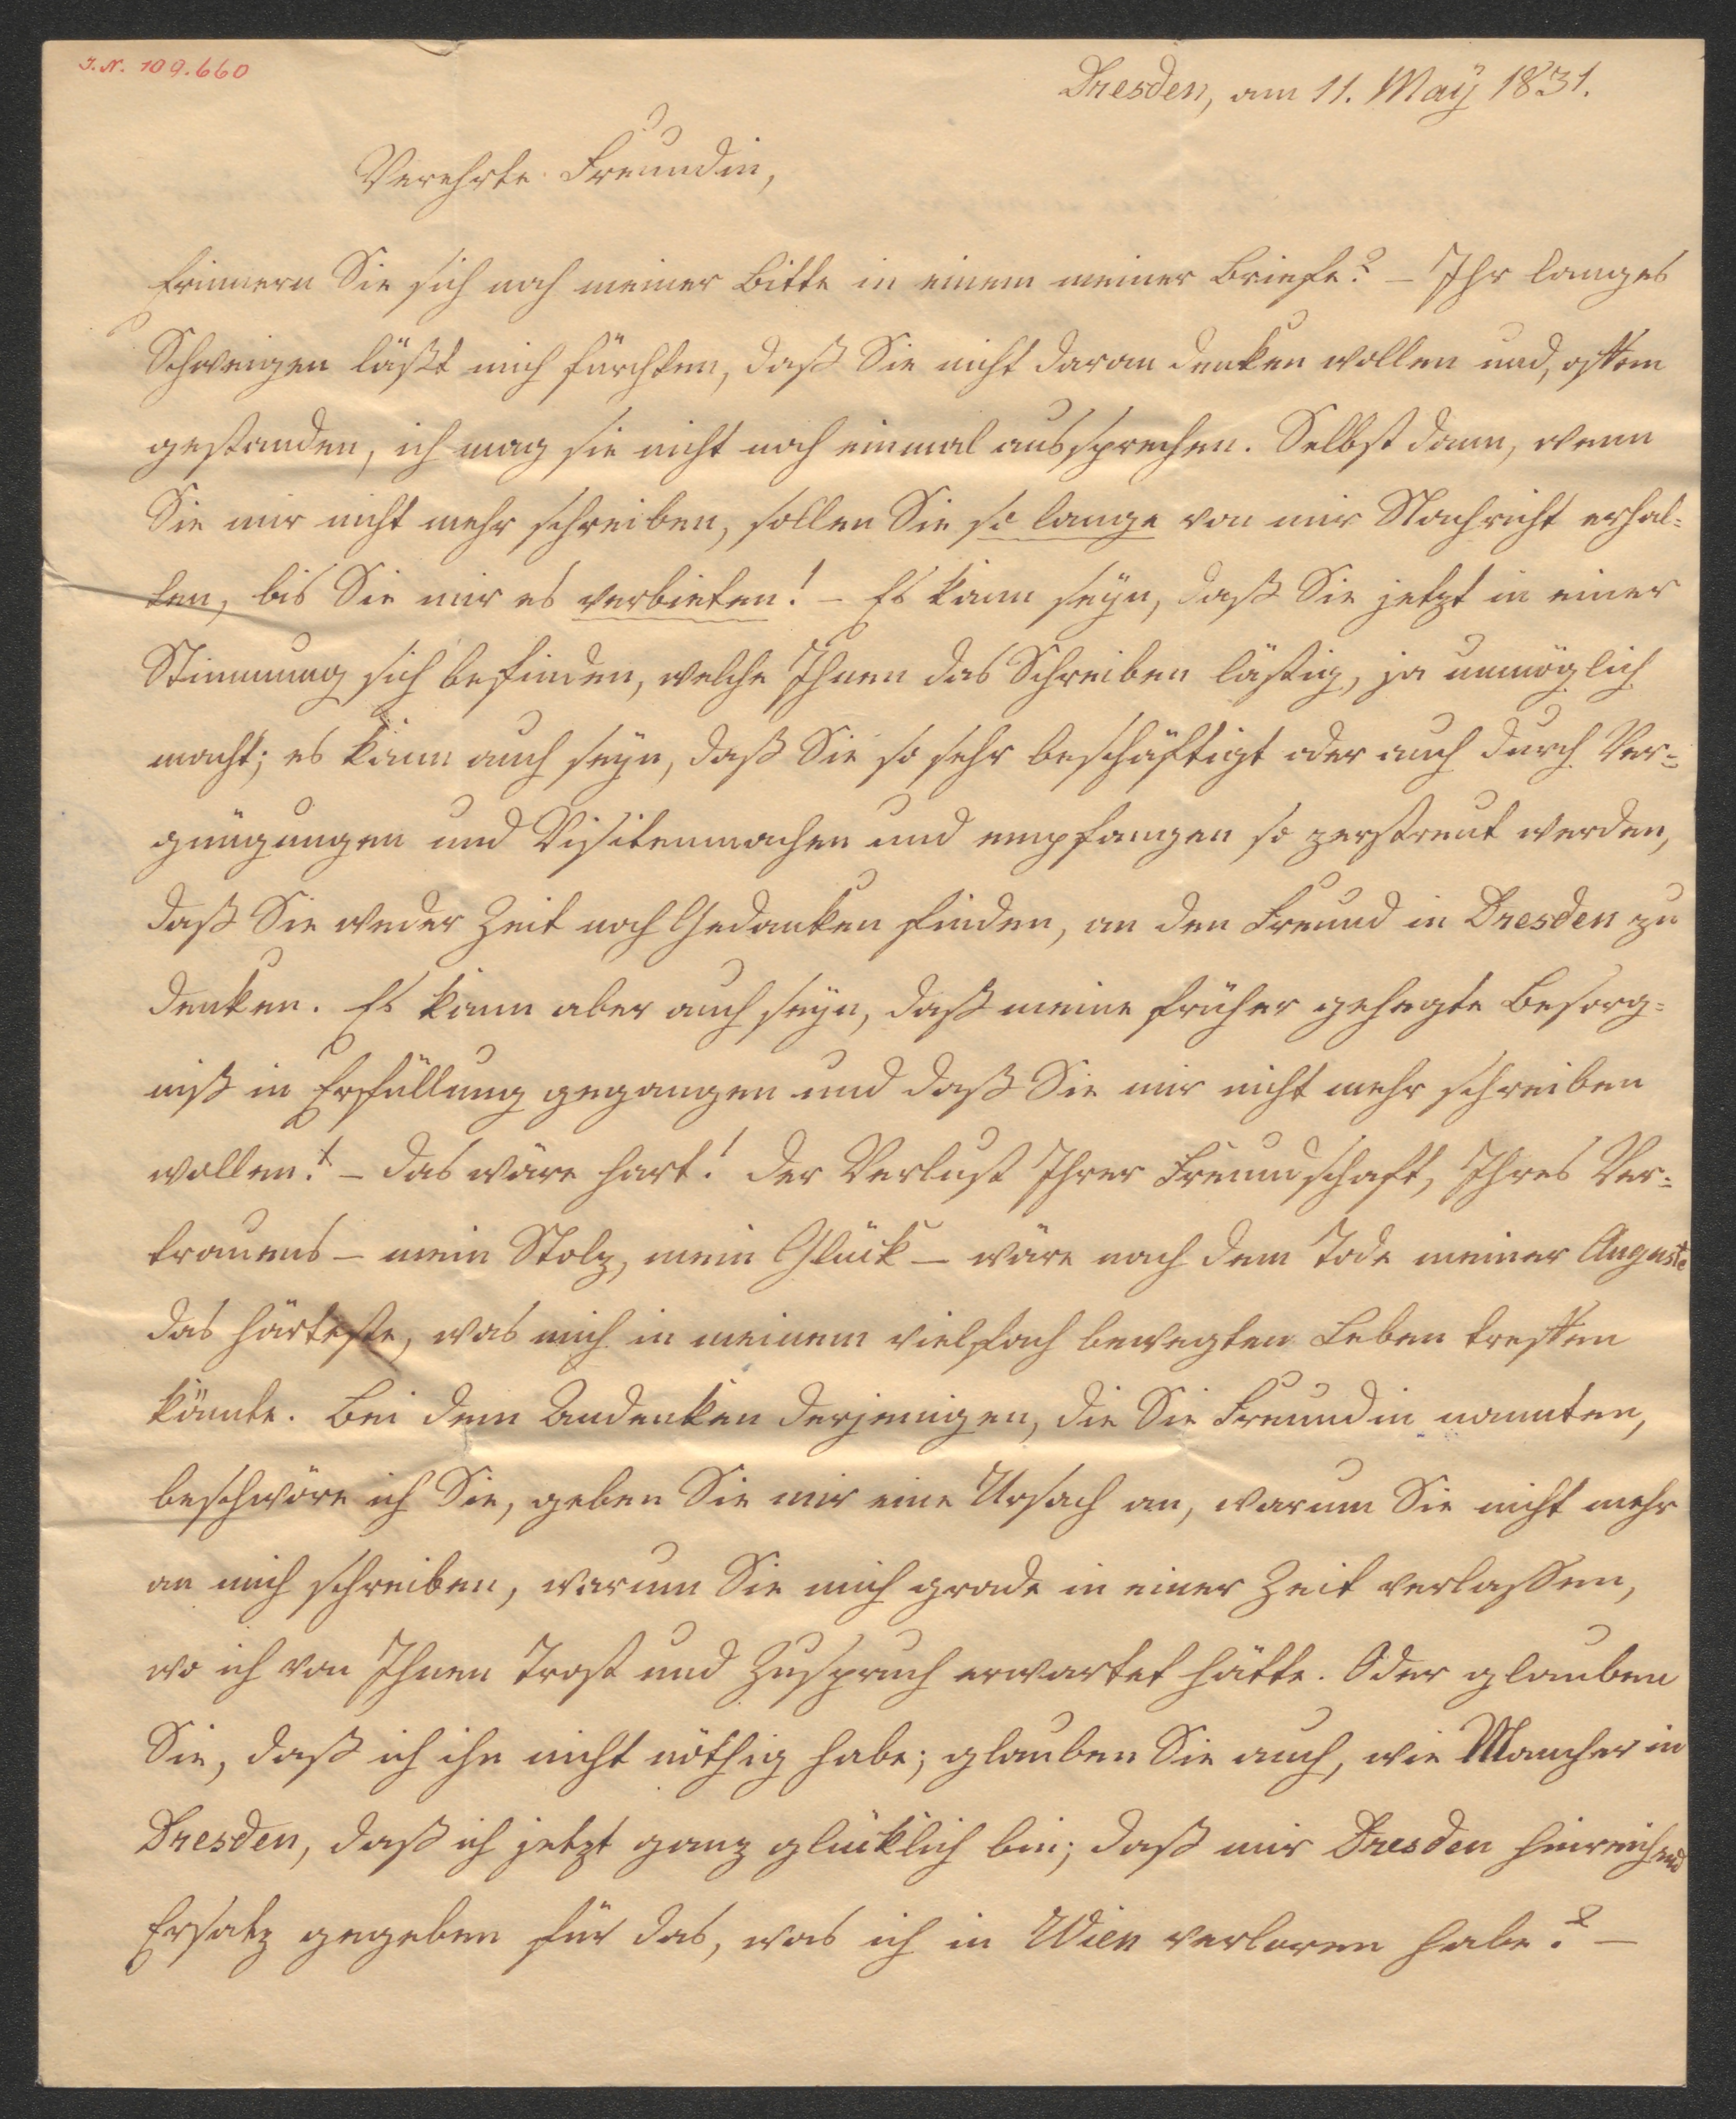 J. N. 109.660
Dresden, am 11. May 1831.
Verehrte Freundin,
Erinnern Sie sich noch meiner Bitte in einem meiner Briefe? – Ihr langes
Schweigen läßt mich fürchten, daß Sie nicht daran denken wollen und, offen
gestanden, ich mag sie nicht noch einmal aussprechen. Selbst dann, wenn
Sie mir nicht mehr schreiben, sollen Sie so lange von mir Nachricht erhal-
ten, bis Sie mir es verbieten! – Es kann seyn, daß Sie jetzt in einer
Stimmung sich befinden, welche Ihnen das Schreiben lästig, ja unmöglich
macht; es kann auch seyn, daß Sie so sehr beschäftigt oder auch durch Ver-
gnügungen und Visitenmachen und empfangen so zerstreut werden,
daß Sie weder Zeit noch Gedanken finden, an den Freund in Dresden zu
denken. Es kann aber auch seyn, daß meine früher gehegte Besorg-
niß in Erfüllung gegangen und daß Sie mir nicht mehr schreiben
wollen! – das wäre hart! Der Verlust Ihrer Freundschaft, Ihres Ver-
trauens – mein Stolz, mein Glück – wäre nach dem Tode meiner Auguste
das härteste, was mich in meinem vielfach bewegten Leben treffen
könnte. Bei dem Andenken derjenigen, die Sie Freundin nannten,
beschwöre ich Sie, geben Sie mir eine Ursach an, warum Sie nicht mehr
an mich schreiben, warum Sie mich grade in einer Zeit verlassen,
wo ich von Ihnen Trost und Zuspruch erwartet hätte. Oder glauben
Sie, daß ich ihn nicht nöthig habe; glauben Sie auch, wie Mancher in
Dresden, daß ich jetzt ganz glücklich bin; daß mir Dresden hinreichend
Ersatz gegeben für das, was ich in Wien verloren habe? –